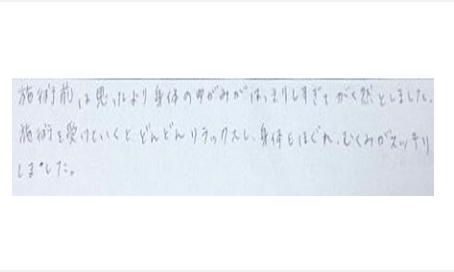 施術前は思ったより身体のゆがみがはっきりしすぎてがく然としました。
施術を受けていくとどんどんリラックスし、身体もほぐれ、むくみがスッキリ
しました。